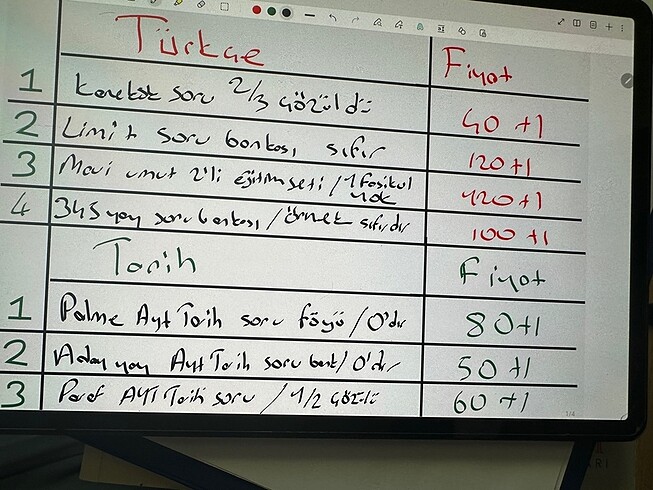 Türkçe Fiyat
1 Karekök soru 2/3 çözüldü 40 +1
2 Limit soru bankası sıfır 120 +1
3 Mavi umut 2'li eğitim seti / 1 fasikül yok 120 +1
4 345 yay soru bankası / örnek sıfırdır 100 +1
Tarih Fiyat
1 Palme Ayt Tarih soru föyü / 0'dır 80 +1
2 Aday yay Ayt Tarih soru bank / 0'dır 50 +1
3 Paraf AYT Tarih soru / 1/2 çözülü 60 +1
1/4